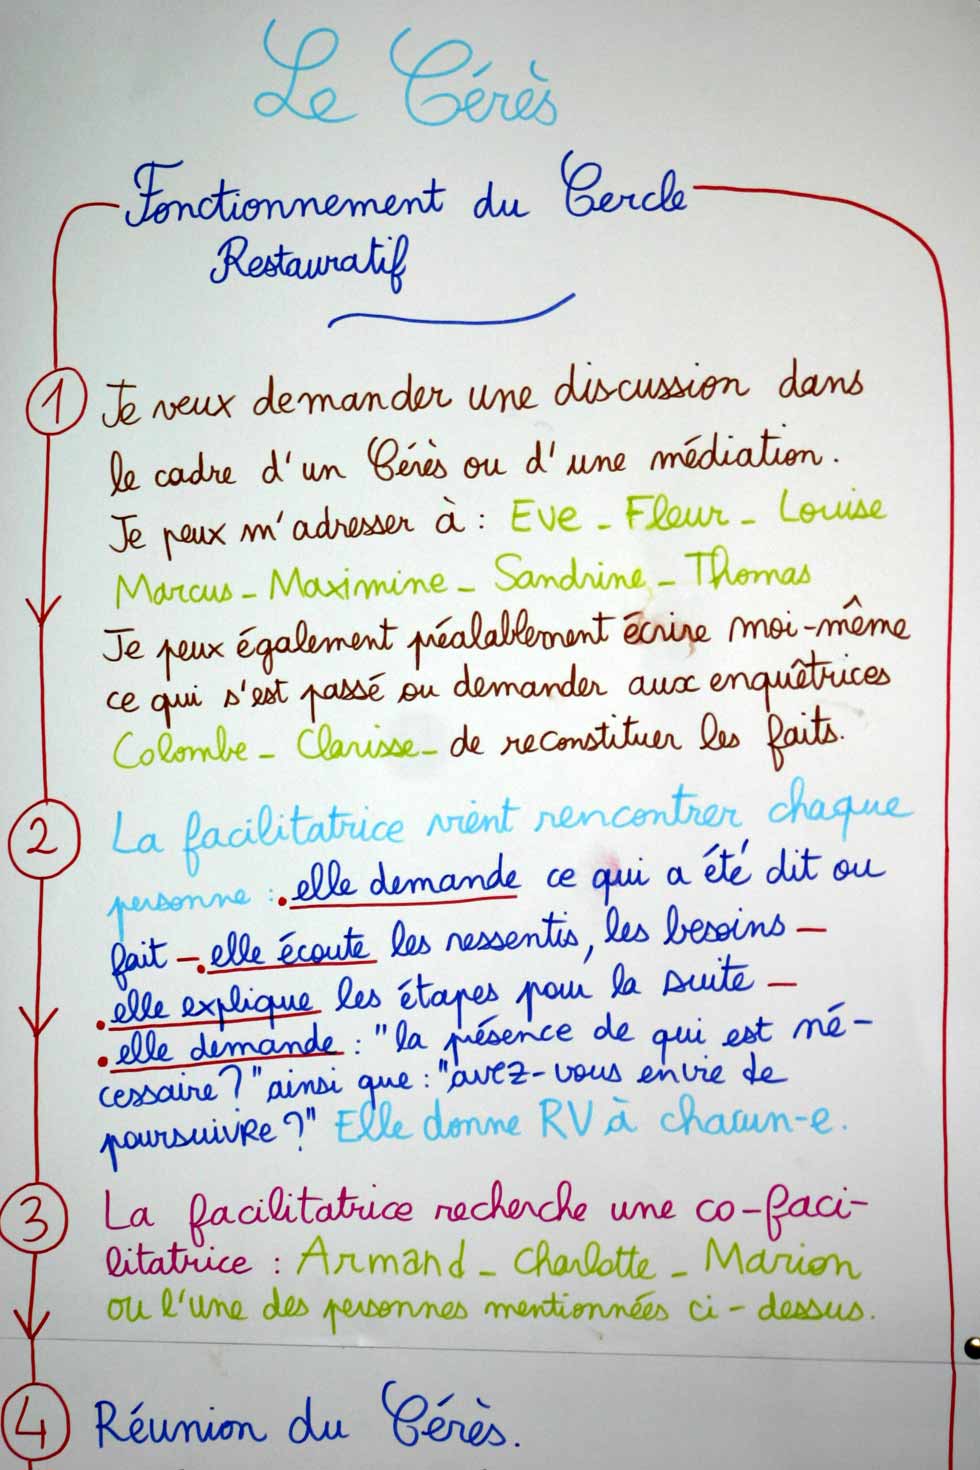 Le Cérès
Fonctionnement du Cercle
Restauratif
1 Je veux demander une discussion dans
le cadre d'un Cérès ou d'une médiation.
Je peux m'adresser à : Eve - Fleur - Louise
Marcus - Maximine - Sandrine - Thomas
Je peux également préalablement écrire moi-même
ce qui s'est passé ou demander aux enquêtrices
Colombe - Clarisse - de reconstituer les faits.
2 La facilitatrice vient rencontrer chaque
personne : • elle demande ce qui a été dit ou
fait - • elle écoute les ressentis, les besoins -
• elle explique les étapes pour la suite -
• elle demande : "la présence de qui est né-
cessaire ?" ainsi que : "avez-vous envie de
poursuivre ?" Elle donne RV à chacun-e.
3 La facilitatrice recherche une co-faci-
litatrice : Armand - Charlotte - Marion
ou l'une des personnes mentionnées ci-dessus.
4 Réunion du Cérès.